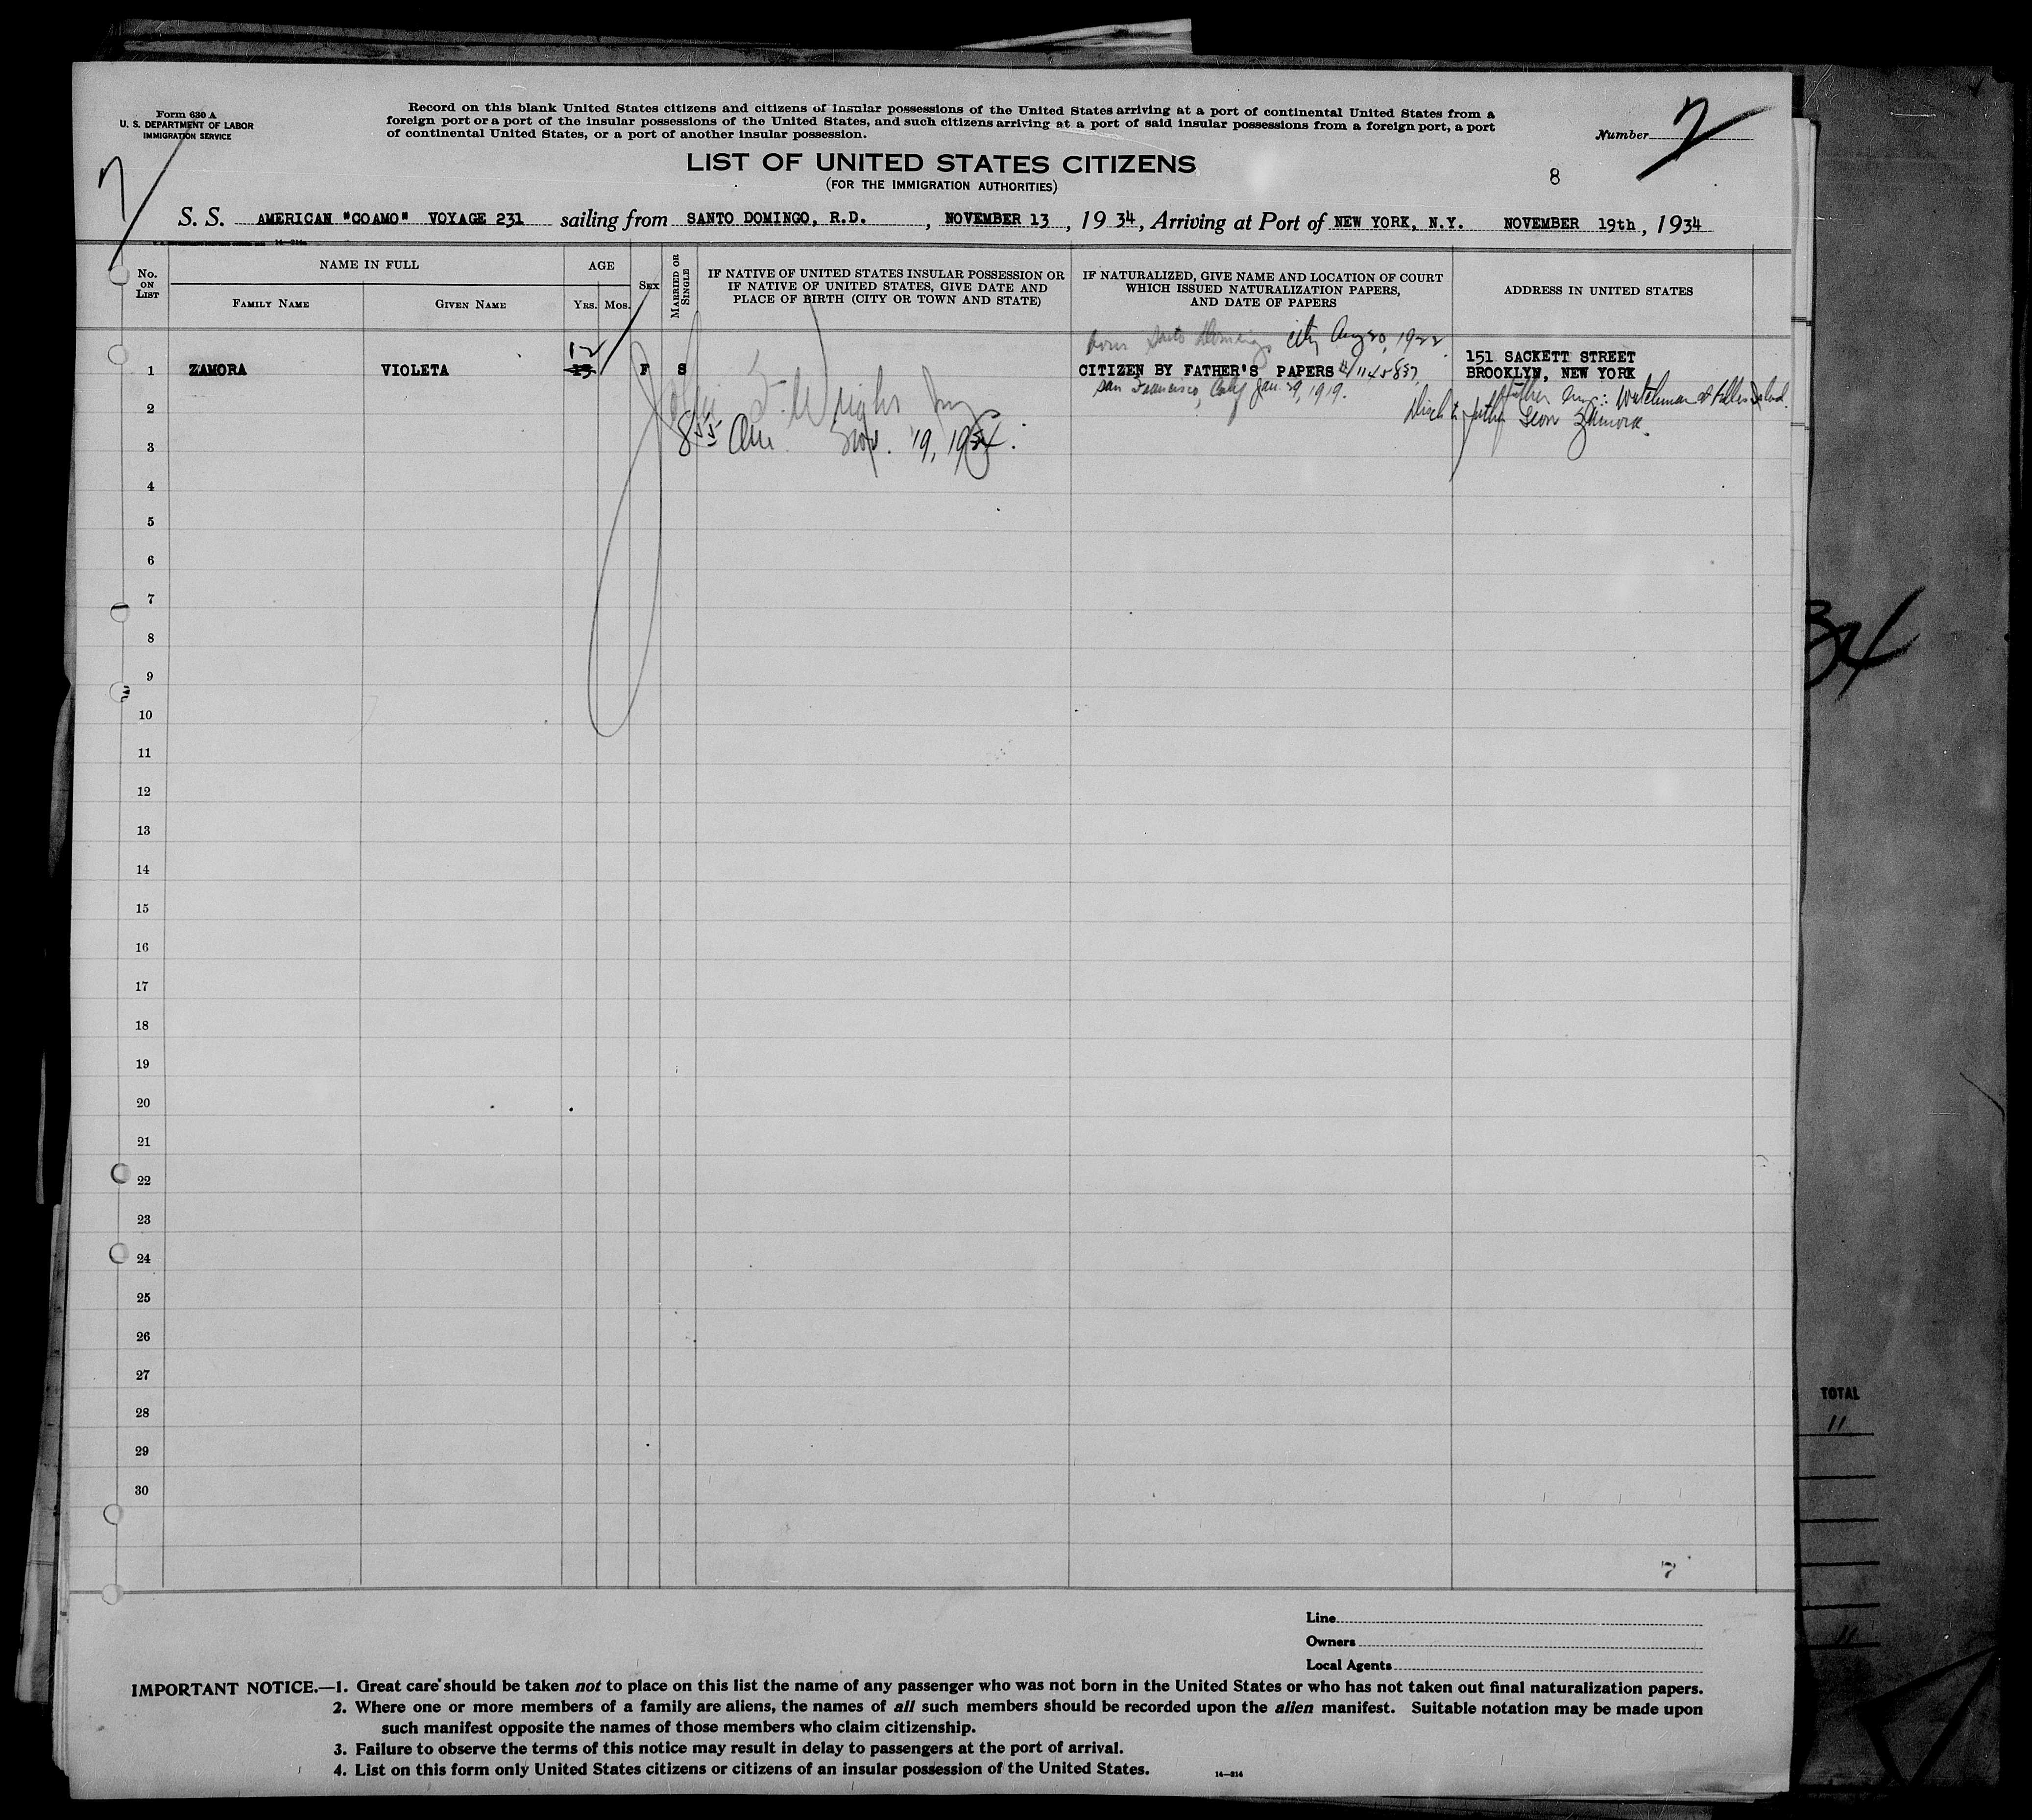 Form 630 A
U. S. DEPARTMENT OF LABOR
IMMIGRATION SERVICE
Record on this blank United States citizens and citizens of insular possessions of the United States arriving at a port of continental United States from a
foreign port or a port of the insular possessions of the United States, and such citizens arriving at a port of said insular possessions from a foreign port, a port
of continental United States, or a port of another insular possession.
Number 2
7
LIST OF UNITED STATES CITIZENS
(FOR THE IMMIGRATION AUTHORITIES)
8
S. S. AMERICAN "COAMO" VOYAGE 231 sailing from SANTO DOMINGO, R.D. , NOVEMBER 13 , 1934, Arriving at Port of NEW YORK, N.Y. NOVEMBER 19th , 1934
No. ON LIST
NAME IN FULL
FAMILY NAME
GIVEN NAME
AGE
Yrs.
Mos.
SEX
MARRIED OR SINGLE
IF NATIVE OF UNITED STATES INSULAR POSSESSION OR
IF NATIVE OF UNITED STATES, GIVE DATE AND
PLACE OF BIRTH (CITY OR TOWN AND STATE)
IF NATURALIZED, GIVE NAME AND LOCATION OF COURT
WHICH ISSUED NATURALIZATION PAPERS,
AND DATE OF PAPERS
ADDRESS IN UNITED STATES
born Santo Domingo city Aug 20, 1922
12
1 ZAMORA VIOLETA 13 F S CITIZEN BY FATHER'S PAPERS
151 SACKETT STREET
BROOKLYN, NEW YORK
San Francisco, Calif Jan. 29, 1919.
father Leon Zamora.
2
855 am Nov. 19, 1934.
3
4
5
6
7
8
9
10
11
12
13
14
15
16
17
18
19
20
21
22
23
24
25
26
27
28
29
30
7
34
TOTAL
11
11
Line
Owners
Local Agents
IMPORTANT NOTICE.—1. Great care should be taken not to place on this list the name of any passenger who was not born in the United States or who has not taken out final naturalization papers.
2. Where one or more members of a family are aliens, the names of all such members should be recorded upon the alien manifest. Suitable notation may be made upon
such manifest opposite the names of those members who claim citizenship.
3. Failure to observe the terms of this notice may result in delay to passengers at the port of arrival.
4. List on this form only United States citizens or citizens of an insular possession of the United States.
14—214